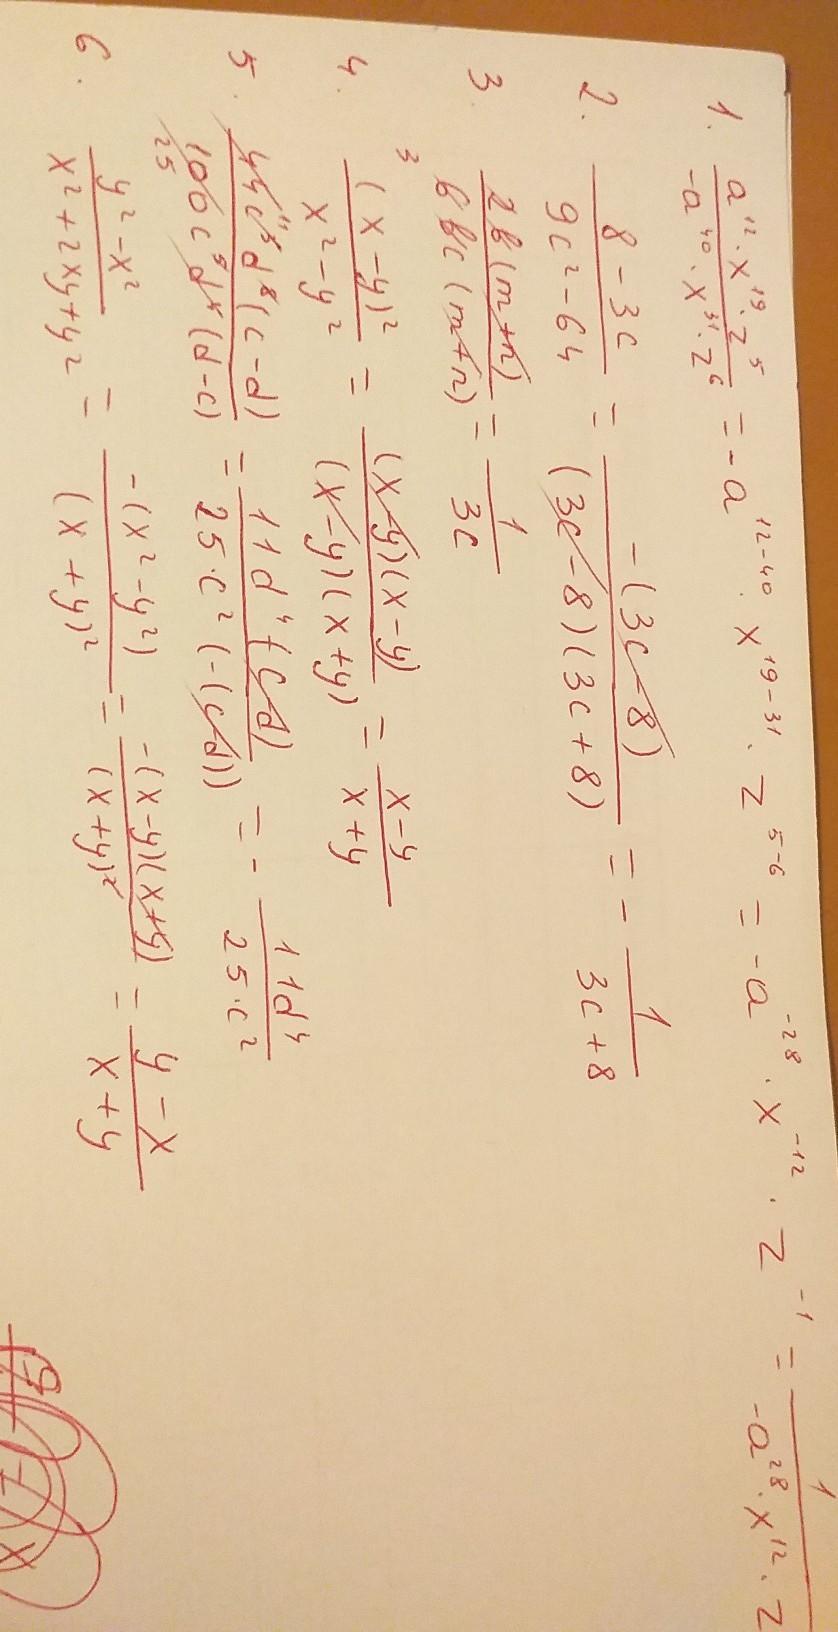 1. a¹²·x¹⁹·z⁵ / -a⁴⁰·x³¹·z⁶ = -a¹²⁻⁴⁰·x¹⁹⁻³¹·z⁵⁻⁶ = -a⁻²⁸·x⁻¹²·z⁻¹ = 1 / -a²⁸·x¹²·z
2. 8-3c / 9c²-64 = -(3c-8) / (3c-8)(3c+8) = - 1 / 3c+8
3. 2b(m+n) / 6bc(m+n) = 1 / 3c
3
4. (x-y)² / x²-y² = (x-y)(x-y) / (x-y)(x+y) = x-y / x+y
5. 44c³d⁸(c-d) / 100c⁵d⁴(d-c) = 11d⁴(c-d) / 25·c²(-(c-d)) = - 11d⁴ / 25·c²
11
25
6. y²-x² / x²+2xy+y² = -(x²-y²) / (x+y)² = -(x-y)(x+y) / (x+y)² = y-x / x+y